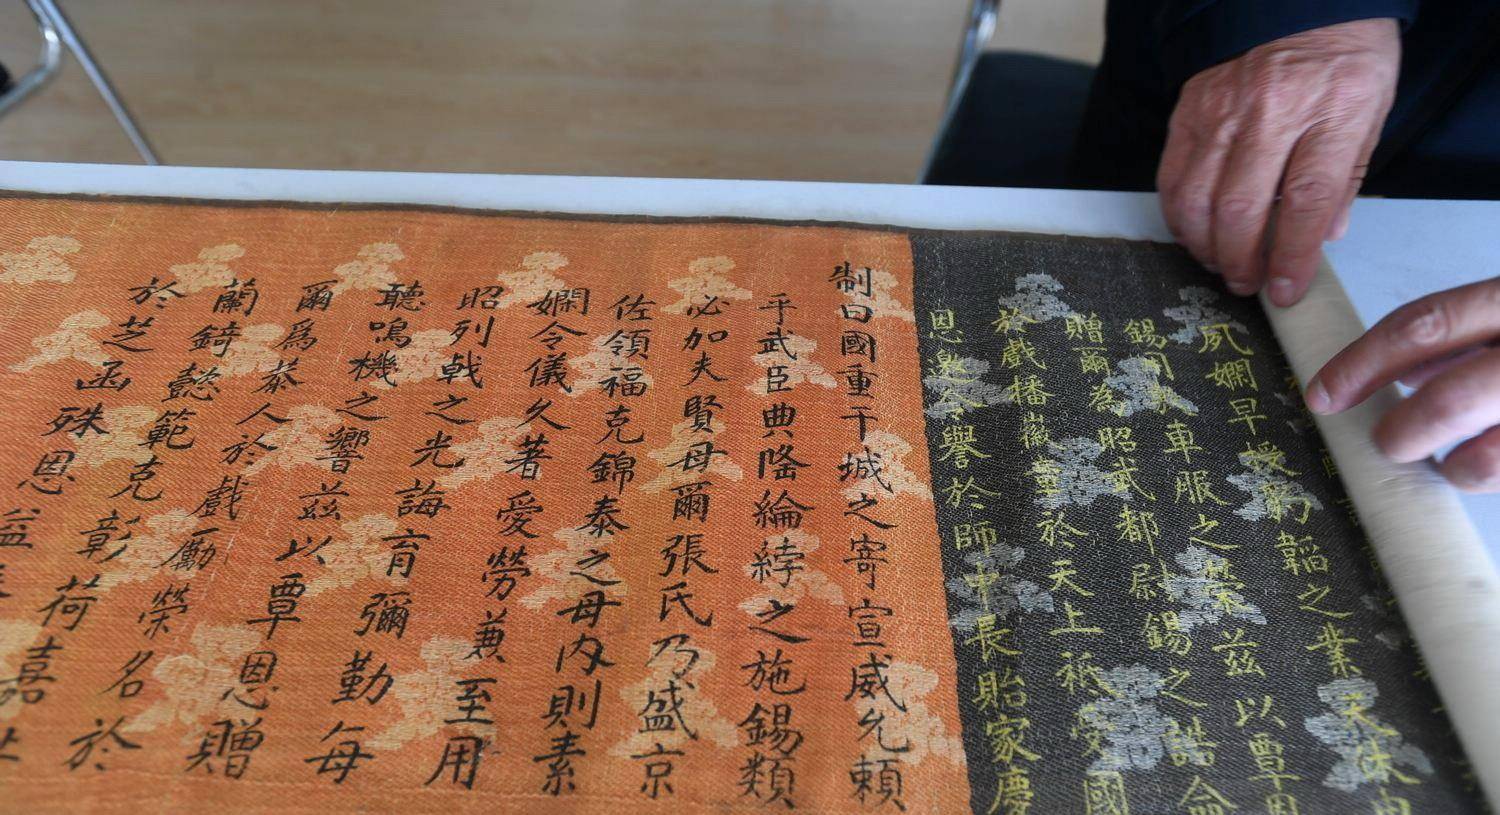 夙嫻早授豹韜之業天休
錫用表車服之榮茲以覃恩
贈爾為昭武都尉錫之誥命
於戲播徽董於天上祇受國
恩邀令譽於師中長貽家慶
制曰國重干城之寄宣威允賴
乎武臣典隆綸綍之施錫類
必加夫賢母爾張氏乃盛京
佐領福克錦泰之母內則素
嫻令儀久著愛勞兼至用
昭列戟之光誨育彌勤每
聽鳴機之響茲以覃恩贈
爾爲恭人於戲勵榮名於
蘭錡懿範克彰荷嘉
於芝函殊恩益